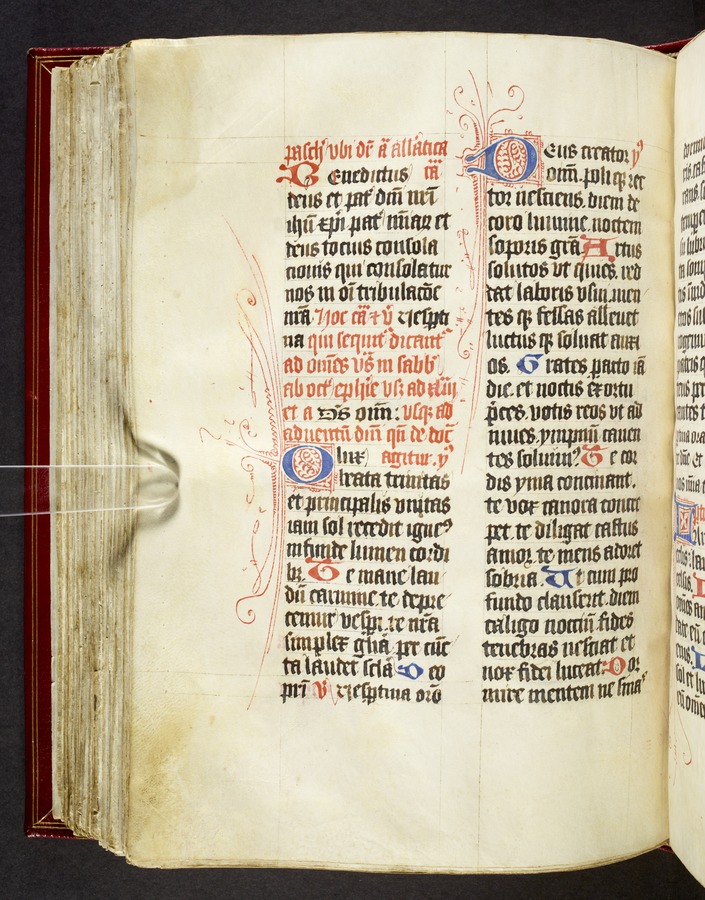 pasch vbi dr a allatica
Benedictus ca
deus et pat dni nri
ihu xpi pat miar et
deus tocius consola
cionis qui consolatur
nos in oi tribulacoe
nra. Hoc ca et v vespti
na qui sequit dicant
ad omes vs in sabb
ab oct ephie vsz ad
et a Dns oim: vsqz ad
aduentu dni qn de doc
O lux agitur. y
beata trinitas
et principalis vnitas
iam sol recedit igneus
infunde lumen cordi
bz. Te mane lau
du carmine. te depre
cemur vespi. te nra
simplex glia per cuc
ta laudet scla Deo
pri V Vesptina oro
Deus creator y
oim. poliqz rec
tor vestiens. diem de
coro lumine. noctem
soporis gra Artus
solutos vt quies. red
dat laboris vsui. men
tes qz fessas alleuet
luctus qz soluat anxi
os. Grates pacto ia
die. et noctis exortu
pces. votis reos vt ad
iuues. ympnu canen
tes soluimus Te cor
dis yma concinant.
te vox canora concre
pet. te diligat castus
amor. te mens adoret
sobria. Ut cum pro
fundo clauserit. diem
caligo noctiu. fides
tenebras nesciat et
nox fidei luceat. Dor
mire mentem ne sinas